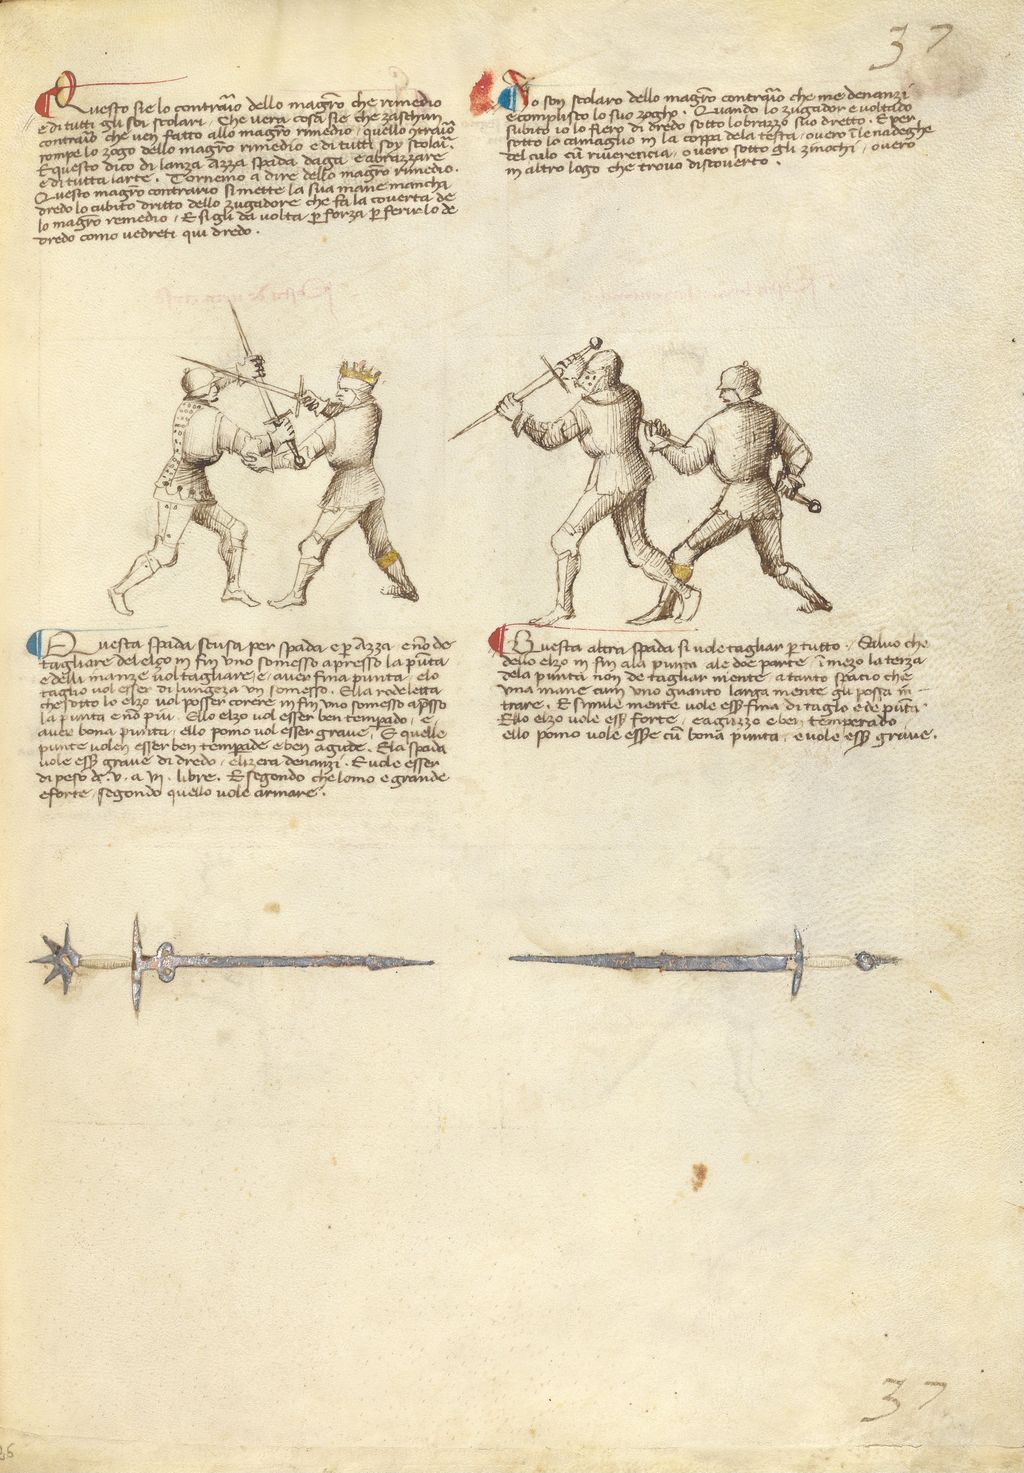 37
Questo sie lo contrario dello magistro che rimedio
e di tutti gli soi scolari. Che vera cosa sie che zaschun
contrario che ven fatto allo magistro rimedio, quello contrario
rompe lo zogo dello magistro rimedio e di tutti soy scolari.
E questo dico di lanza Azza spada daga e abrazzare
e di tutta larte. Tornemo a dire dello magistro rimedio.
Questo magistro contrario si mette la sua mane mancha
dredo lo cubito dritto dello zugadore che fa la coverta de
lo magistro remedio, E si gli dà volta per forza per ferirlo de
dredo como vedreti qui dredo.
Io son scolaro dello magistro contrario che me denanzi
e complisco lo suo zogho. Quando lo zugador e voltado
subito io lo fiero di dredo sotto lo brazzo suo dretto. E per
sotto lo camaglio in la coppa dela testa, overo in le nadeghe
del culo cum riverencia, overo sotto gli zinochi, overo
in altro logo che trovo discoverto.
Questa spada seusa per spada e per Azza e non de
tagliare del elzo in fin uno somesso apresso la punta
e delli inanze vol tagliare e, aver fina punta, e lo
taglio vol esser di lungeza un somesso. E la rodeletta
che sotto lo elzo vol posser corere in fin uno somesso apresso
la punta e non piu. E llo elzo vol esser ben tempado, e,
aver bona punta, ello pomo vol esser grave, E quelle
punte volen esser ben temprade e ben agude. E la spada
vole esser grave di dredo, e lizera denanzi. E vole esser
di peso de .v. a vi. libre. E segondo che lomo e grande
e forte, segondo quello vole armare.
Questa altra spada si vole tagliar per tutto. Salvo che
dello elzo in fin ala punta ale doe parte, in mezo la terza
dela punta non de tagliar mente a tanto spacio che
una mane cum uno guanto larga mente gli possa in-
trare. E simile mente vole esser fina di taglo e de punta
E llo elzo vole esser forte, e aguzzo e ben temperado
e llo pomo vole esser cum bona punta, e vole esser grave.
37